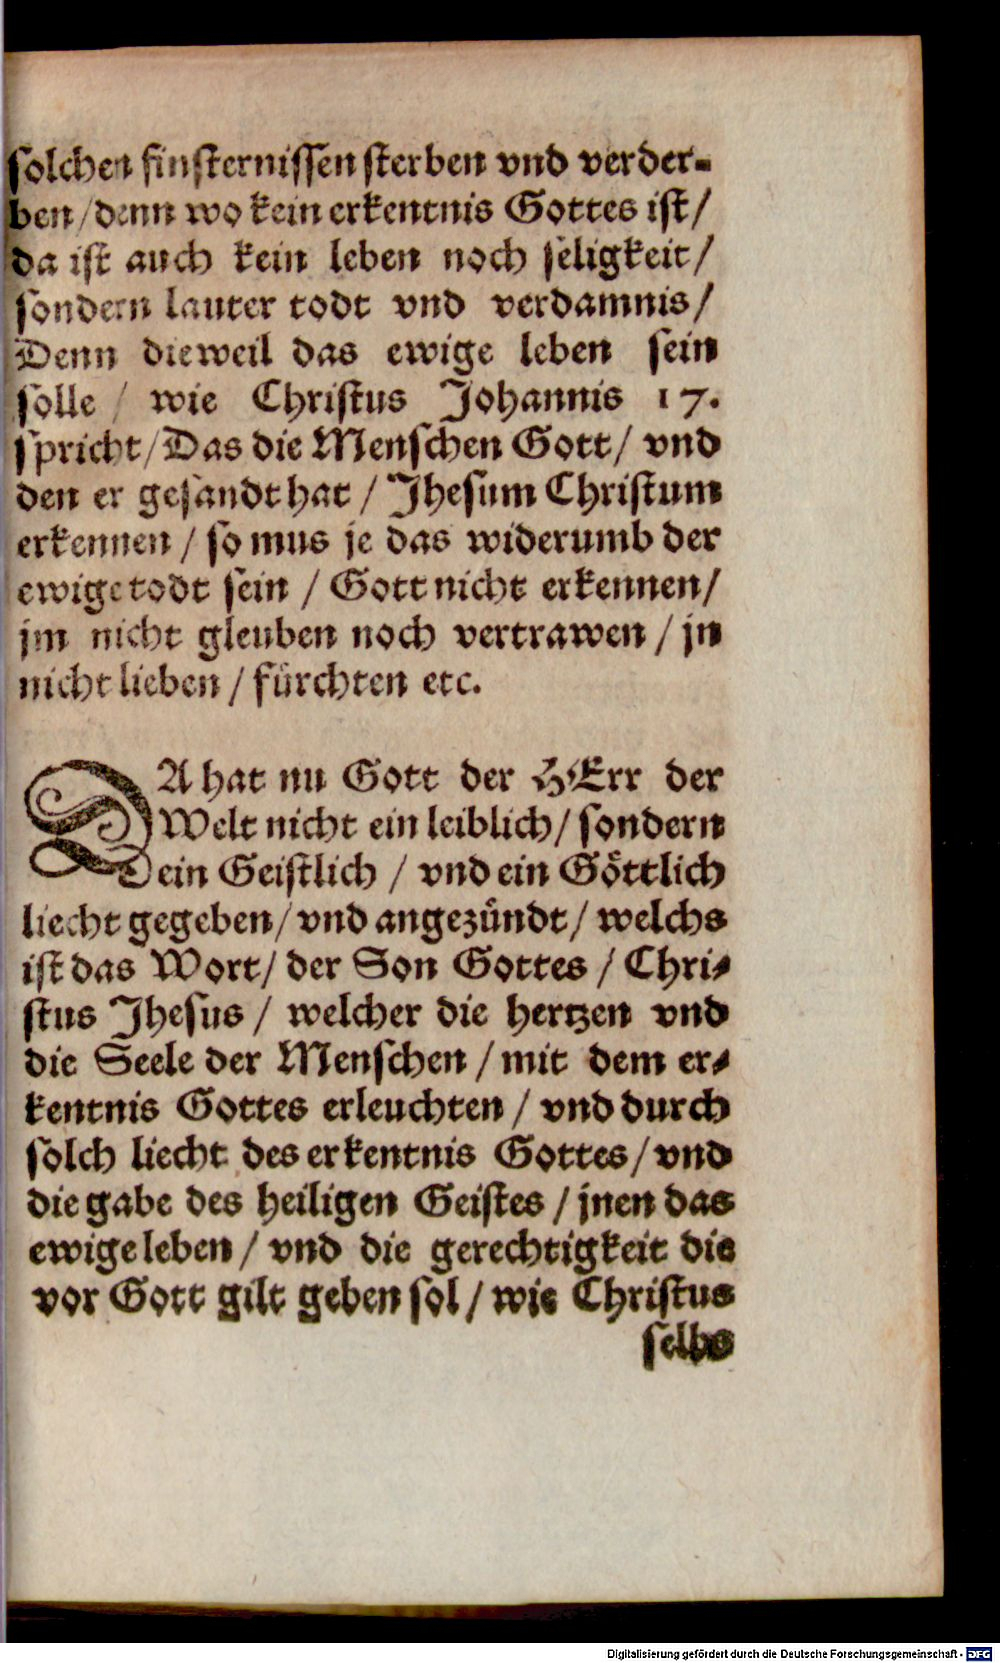 solchen finsternissen sterben vnd verder-
ben / denn wo kein erkentnis Gottes ist /
da ist auch kein leben noch seligkeit /
sondern lauter todt vnd verdamnis /
Denn dieweil das ewige leben sein
solle / wie Christus Johannis 17.
spricht / Das die Menschen Gott / vnd
den er gesandt hat / Jhesum Christum
erkennen / so mus je das widerumb der
ewige todt sein / Gott nicht erkennen /
jm nicht gleuben noch vertrawen / jn
nicht lieben / fürchten etc.
DA hat nu Gott der HErr der
Welt nicht ein leiblich / sondern
ein Geistlich / vnd ein Göttlich
liecht gegeben / vnd angezündt / welchs
ist das Wort / der Son Gottes / Chri-
stus Jhesus / welcher die hertzen vnd
die Seele der Menschen / mit dem er-
kentnis Gottes erleuchten / vnd durch
solch liecht des erkentnis Gottes / vnd
die gabe des heiligen Geistes / jnen das
ewige leben / vnd die gerechtigkeit die
vor Gott gilt geben sol / wie Christus
selbs
Digitalisierung gefördert durch die Deutsche Forschungsgemeinschaft - DFG